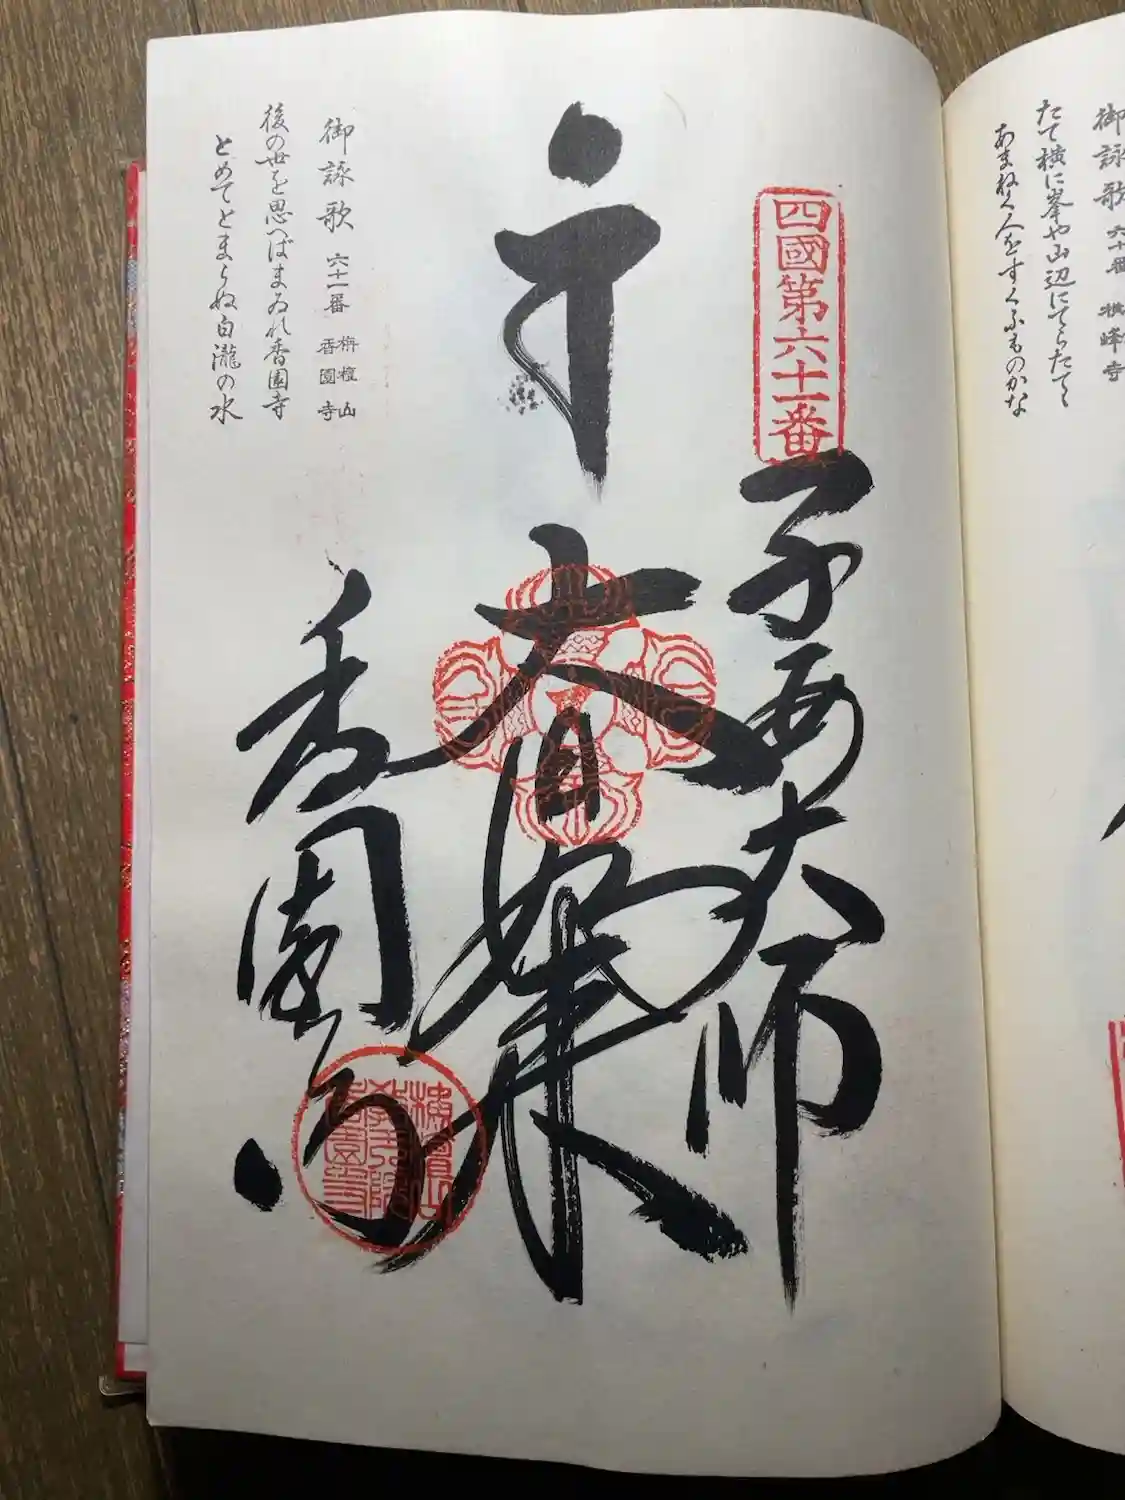 御詠歌
六十番
横峰寺
たて横に峯や山辺にてらたてゝ
あまねく人をすくふものかな
四國第六十一番
子安大師
大日如来
香園寺
御詠歌
六十一番
栴檀山
香園寺
後の世を思へばまゐれ香園寺
とめてとまらぬ白瀧の水